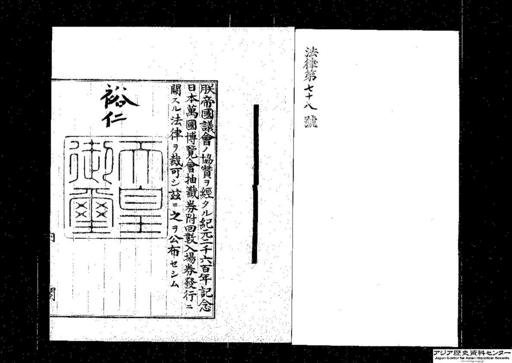 法律第七十八號
朕帝國議會ノ協贊ヲ經タル紀元二千六百年記念
日本萬國博覽會抽籤券附回數入場券發行ニ
關スル法律ヲ裁可シ茲ニ之ヲ公布セシム
裕仁
天皇
御璽
内閣
アジア歴史資料センター
Japan Center for Asian Historical Records